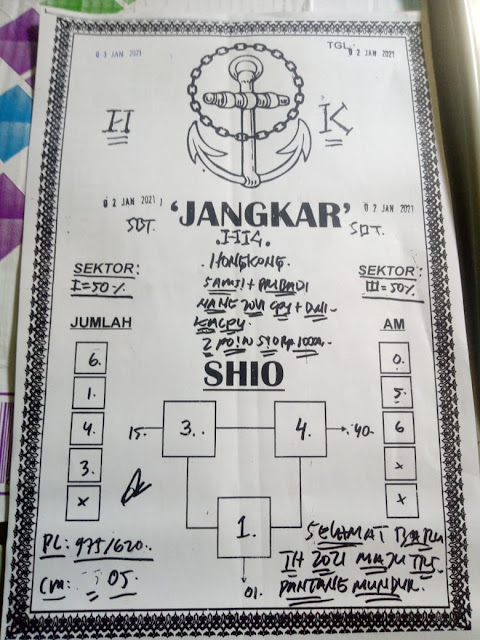 TGL:
0 3 JAN 2021
0 2 JAN 2021
H K
0 2 JAN 2021
0 2 JAN 2021
'JANGKAR'
SBT. SDT.
.HK.
HONGKONG.
SEKTOR: SEKTOR:
I=50% III=50%
2 POIN
JUMLAH AM
SHIO
6. 0.
1. 5.
4. 6
3. x
x x
15. 3. 4. 40.
1.
01.
PL: 975/620.
CM: 05
SELAMAT BARU
TH 2021 MAJU TRS
PANTANG MUNDUR.